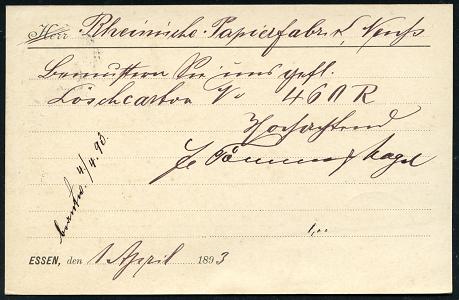 Herr Rheinische Papierfabrik, Neuss
Bemustern Sie uns gefl.
Löschcarton No 460 R
Hochachtend
4/4.93.
1,00
ESSEN, den 1 April 1893